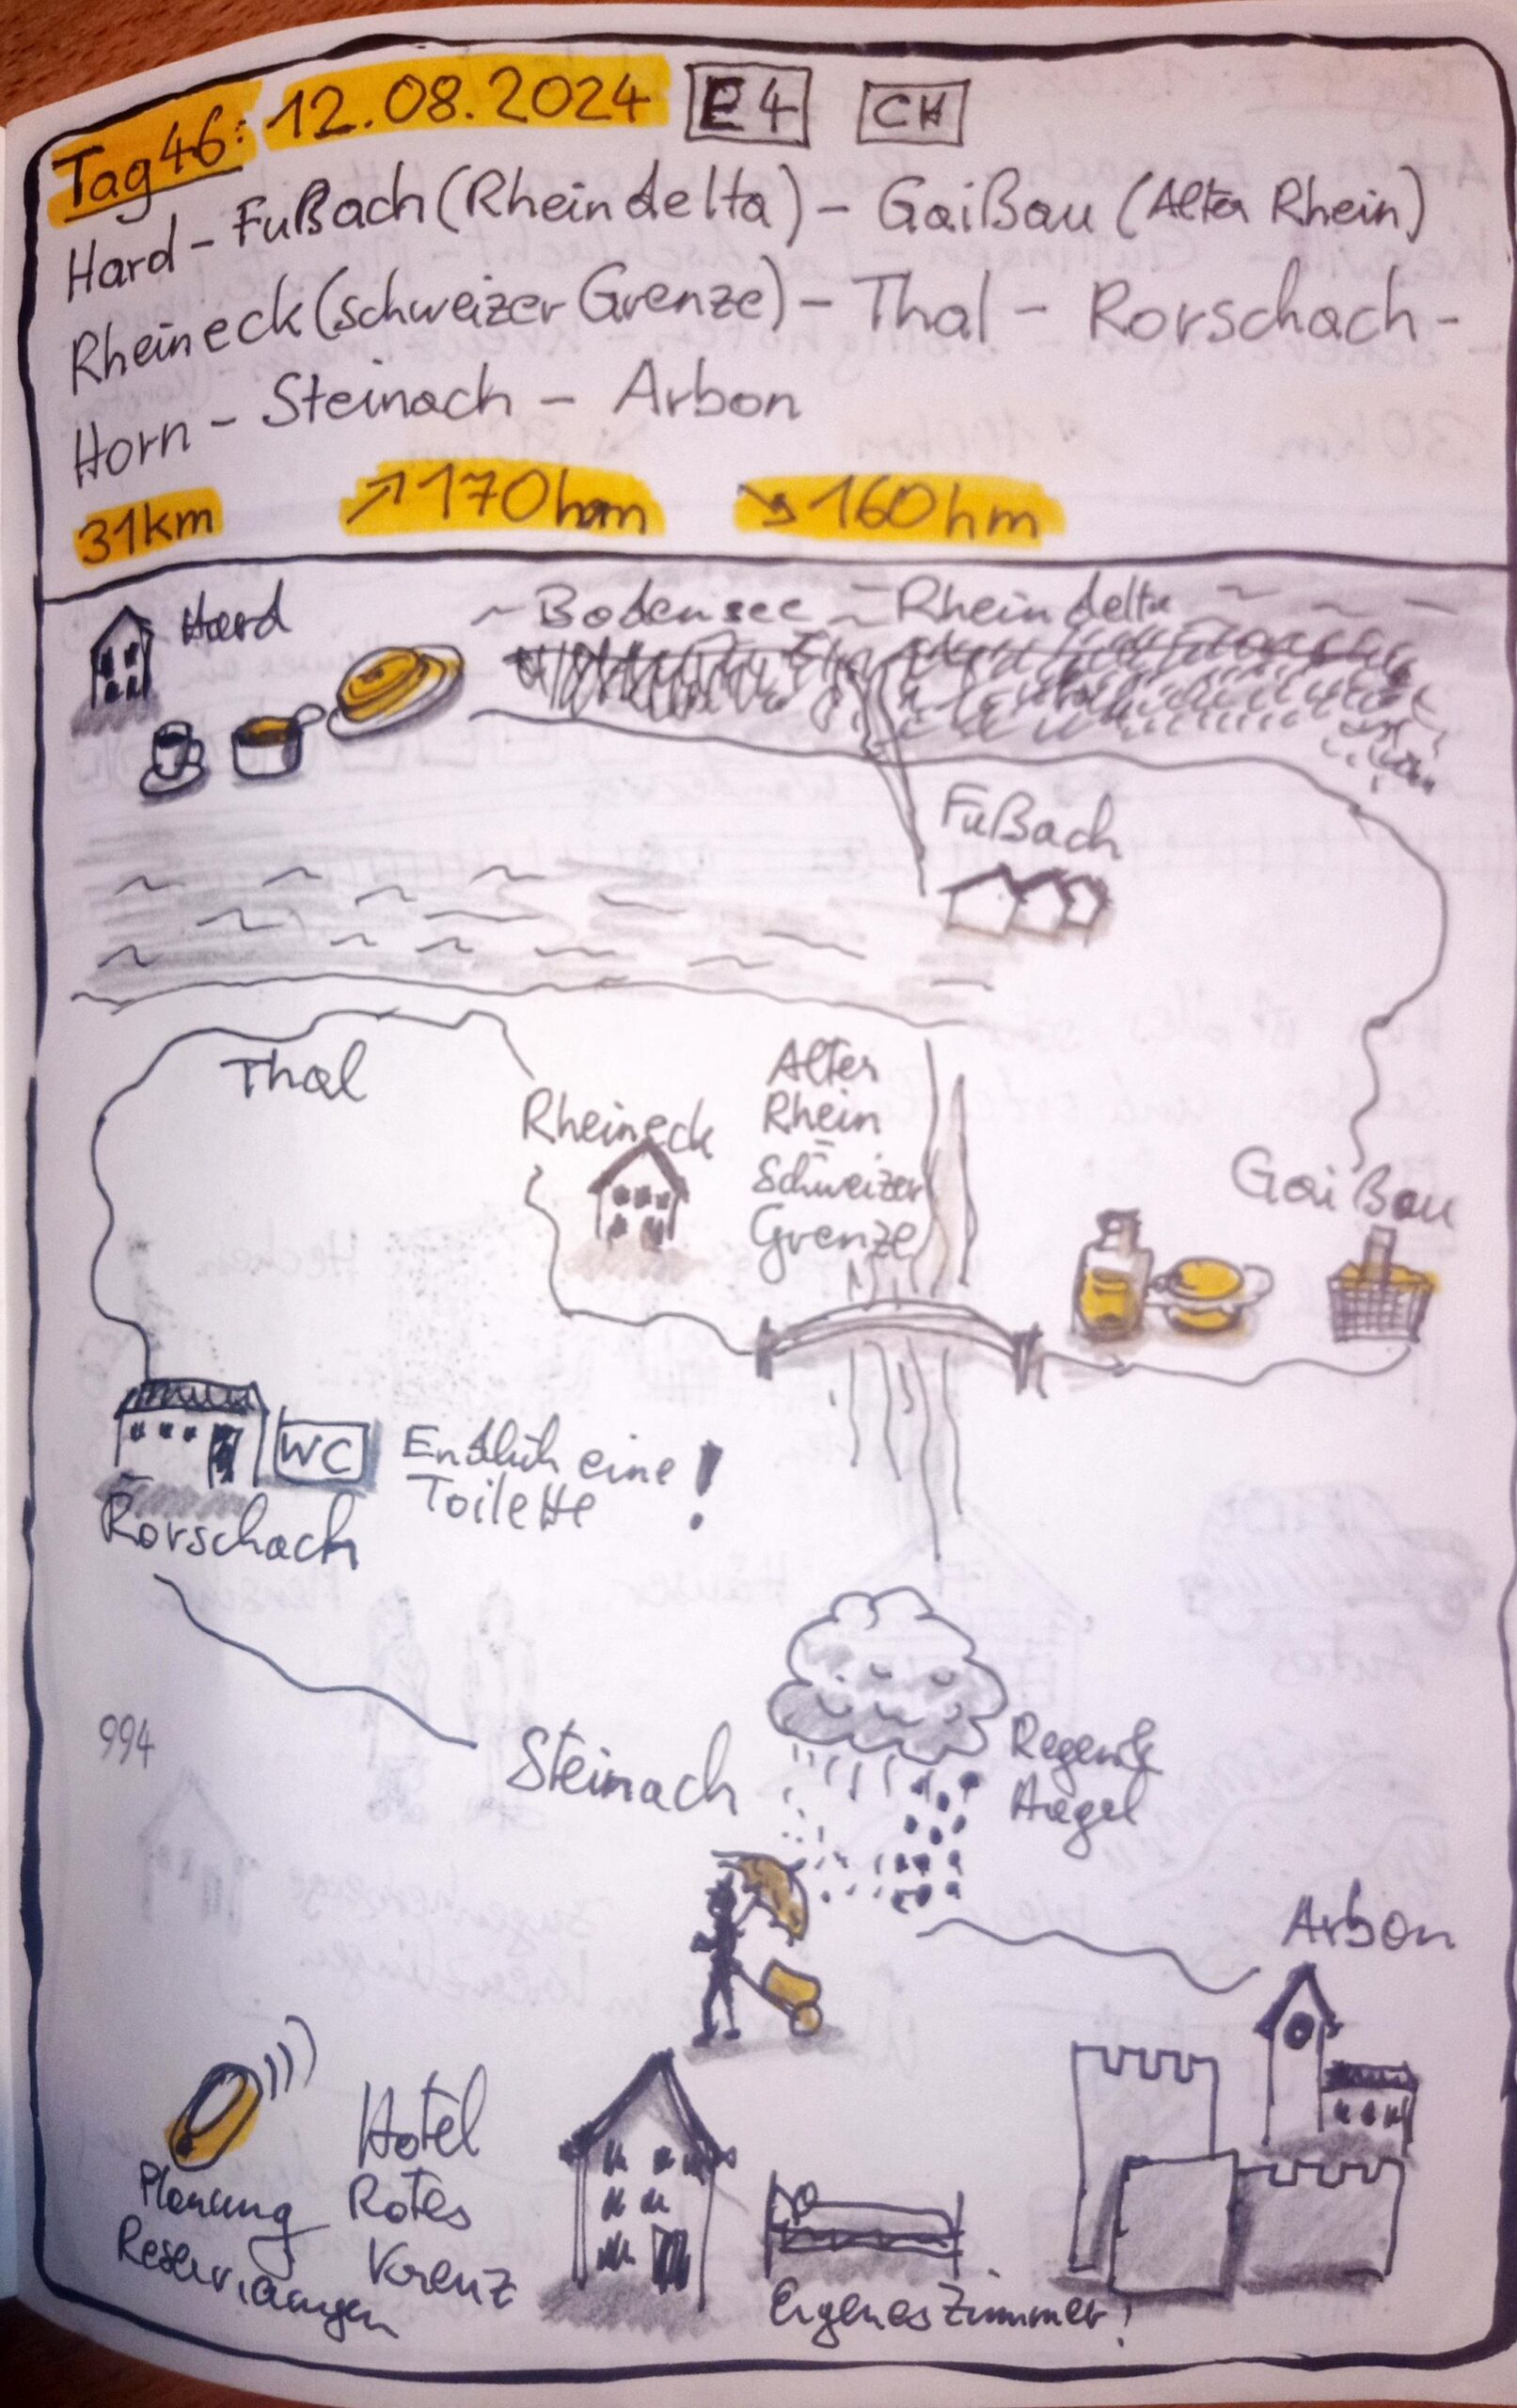 Tag 46: 12.08.2024 E4 CH
Hard - Fußach (Rheindelta) - Gaißau (Alter Rhein)
Rheineck (schweizer Grenze) - Thal - Rorschach -
Horn - Steinach - Arbon
31km ↗170hm ↘160hm
Hard
~ Bodensee ~ Rheindelta
Fußach
Thal
Rheineck
Alter
Rhein
Schweizer
Grenze
Gaißau
WC
Endlich eine
Toilette!
Rorschach
994
Steinach
Regen &
Hagel
Arbon
Planung
Reservierungen
Hotel
Rotes
Kreuz
Eigenes Zimmer!